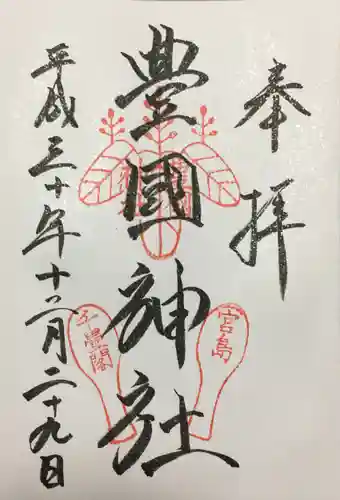 奉拝
豊國神社
平成三十年十二月二十九日
千畳閣
宮島